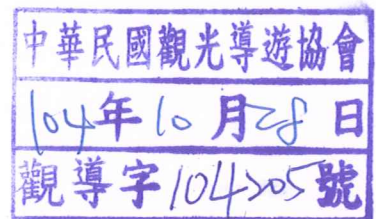 中華民國觀光導遊協會
104年10月28日
觀導字104205號